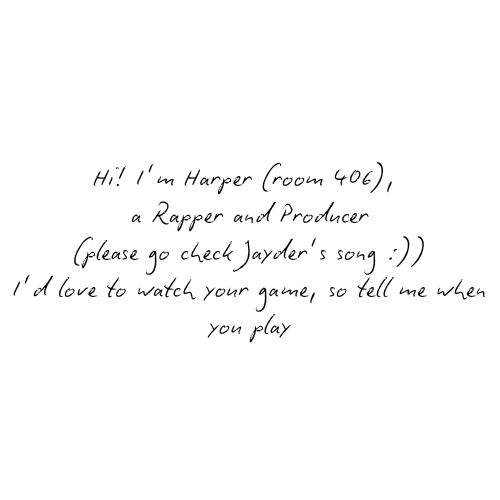 Hi! I'm Harper (room 406),
a Rapper and Producer
(please go check Jayder's song :))
I'd love to watch your game, so tell me when
you play